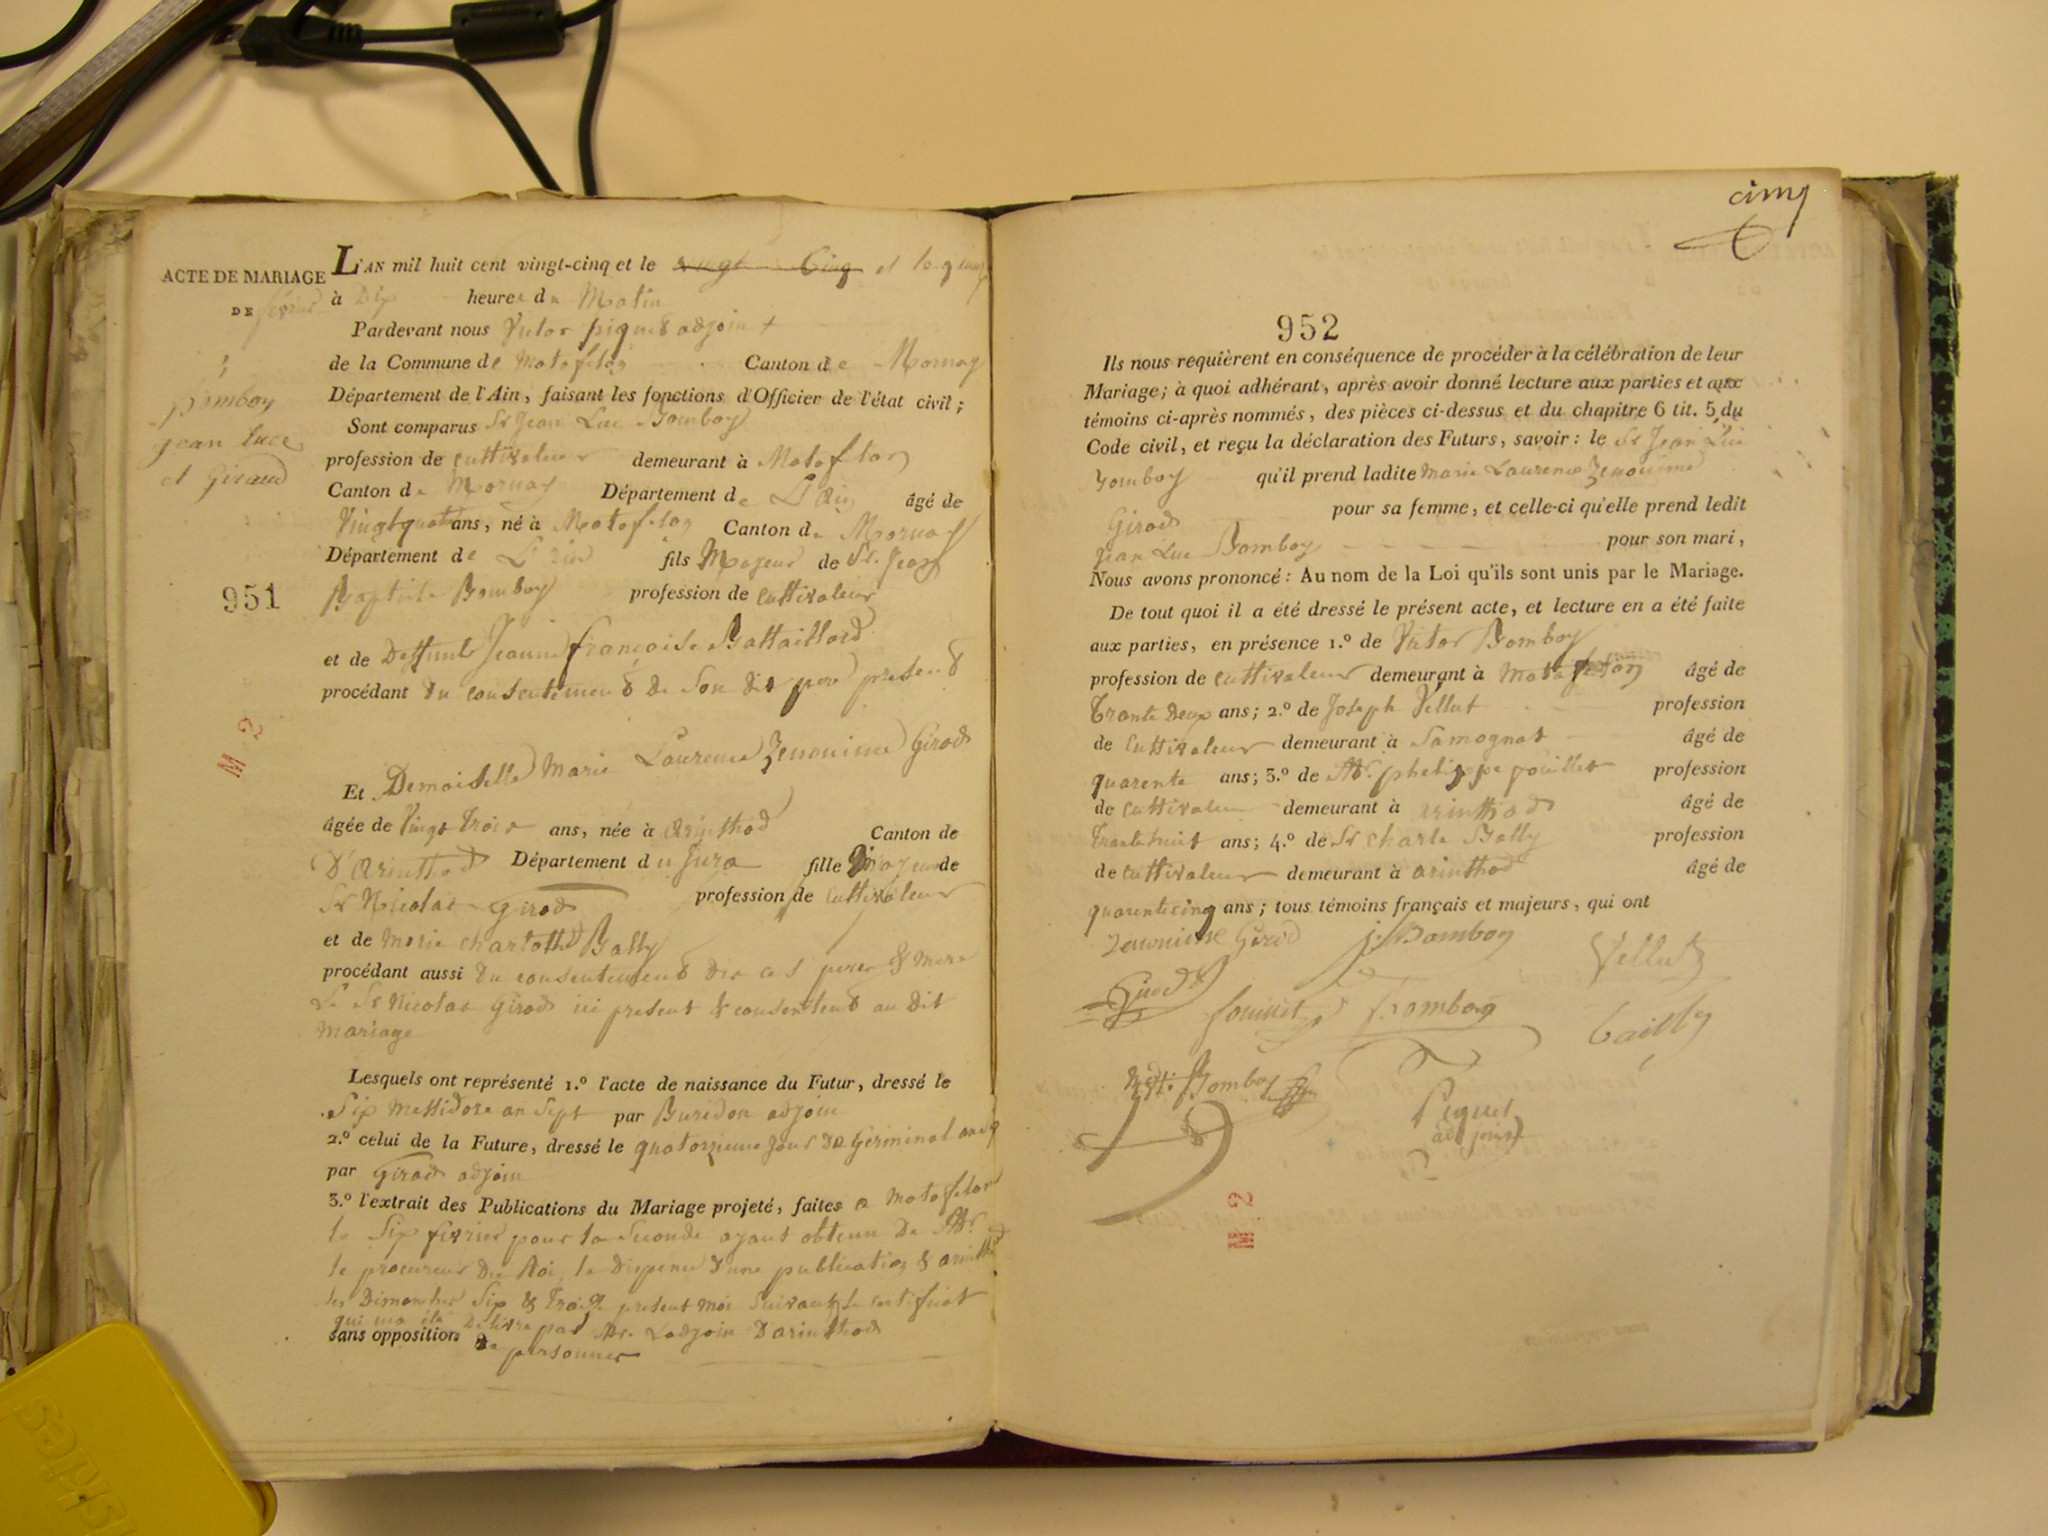 ACTE DE MARIAGE
DE
Bomboy
jean luce
et Giraud
951
L'AN mil huit cent vingt-cinq et le vingt Cinq et le
à Dix heures du Matin
Pardevant nous Victor piquet adjoint
de la Commune de Matafelon Canton de Mornay
Département de l'Ain, faisant les fonctions d'Officier de l'état civil;
Sont comparus Sr Jean Luc Bomboy
profession de cultivateur demeurant à Matafelon
Canton de Mornay Département de L'Ain âgé de
Vingt quatre ans, né à Matafelon Canton de Mornay
Département de L'Ain fils Majeur de Sr. Jean
Baptiste Bomboy profession de cultivateur
et de Deffunte Jeanne françoise Battaillard
procédant du consentement de Son dit pere present
Et Demoiselle Marie Laurence Zenonime Girod
âgée de Vingt Trois ans, née à arinthod Canton de
D'arinthod Département du Jura fille Majeure de
Sr Nicolas Girod profession de cultivateur
et de Marie charlotte Bally
procédant aussi du consentement des pere & mere
Le Sr Nicolas Girod ici present & consentent au dit
mariage
Lesquels ont représenté 1.º l'acte de naissance du Futur, dressé le
Six Messidore an Sept par Buridon adjoin
2.º celui de la Future, dressé le quatorzieme jour de Germinal
par Girod adjoin
3.º l'extrait des Publications du Mariage projeté, faites a Matafelon
le Six fevrier pour la Seconde ayant obtenu de Mr.
le procureur du Roi, la Dispense d'une publication &
les Dimanches Six & present moi suivant le certificat
qui ma été Delivre par Mr. Ladjoin Darinthod
sans opposition de personnes
M 2
cinq
952
Ils nous requièrent en conséquence de procéder à la célébration de leur
Mariage; à quoi adhérant, après avoir donné lecture aux parties et aux
témoins ci-après nommés, des pièces ci-dessus et du chapitre 6 tit. 5 du
Code civil, et reçu la déclaration des Futurs, savoir: le Sr Jean Luc
Bomboy qu'il prend ladite Marie Laurence Zenonime
Girod pour sa femme, et celle-ci qu'elle prend ledit
Jean Luc Bomboy pour son mari,
Nous avons prononcé: Au nom de la Loi qu'ils sont unis par le Mariage.
De tout quoi il a été dressé le présent acte, et lecture en a été faite
aux parties, en présence 1.º de Victor Bomboy
profession de cultivateur demeurant à Matafelon âgé de
Trante Deux ans; 2.º de Joseph Vellut profession
de cultivateur demeurant à Samognat âgé de
quarente ans; 3.º de Mr. phelippe pouillet profession
de cultivateur demeurant à arinthod âgé de
Trante huit ans; 4.º de Sr charle Bally profession
de cultivateur demeurant à arinthod âgé de
quarente cinq ans; tous témoins français et majeurs, qui ont
Zenonime Girod j. Bomboy Vellut
Girod Bomboy Bailly
Bomboy
Piquet
adjoint
M 2